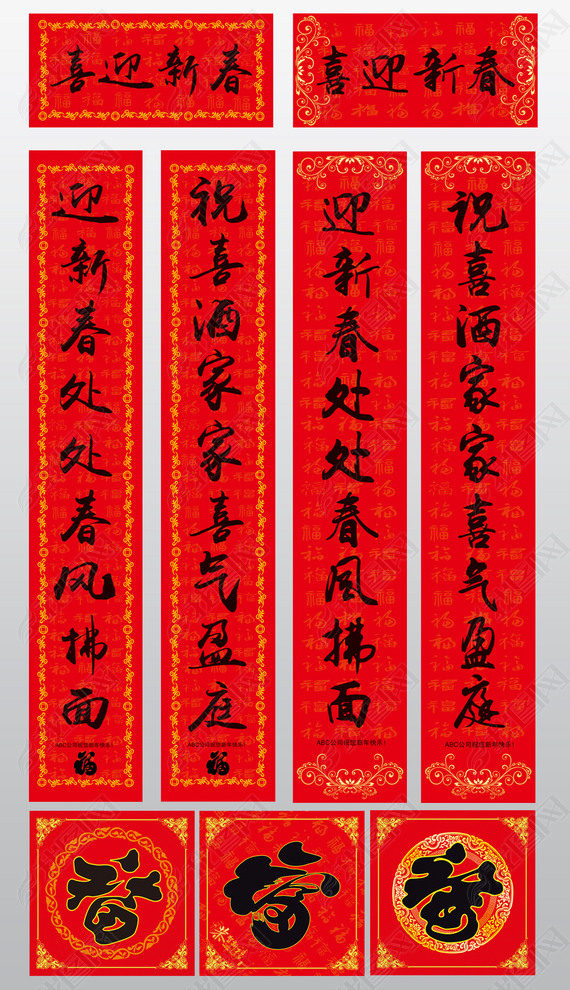 喜迎新春
喜迎新春
迎新春处处春风拂面
ABC公司祝您新年快乐!
福
祝喜酒家家喜气盈庭
ABC公司祝您新年快乐!
福
迎新春处处春风拂面
ABC公司祝您新年快乐!
祝喜酒家家喜气盈庭
ABC公司祝您新年快乐!
福
福
福